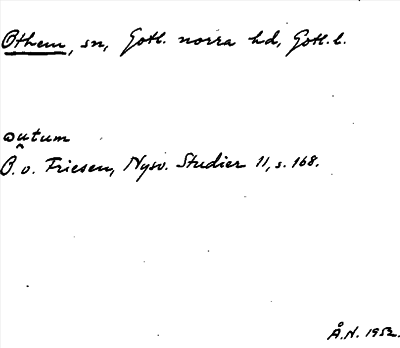 Othem, sn, Gotl. norra hd, Gotl. l.
outum
O. v. Friesen, Nysv. Studier 11, s. 168.
Å.H. 1952.